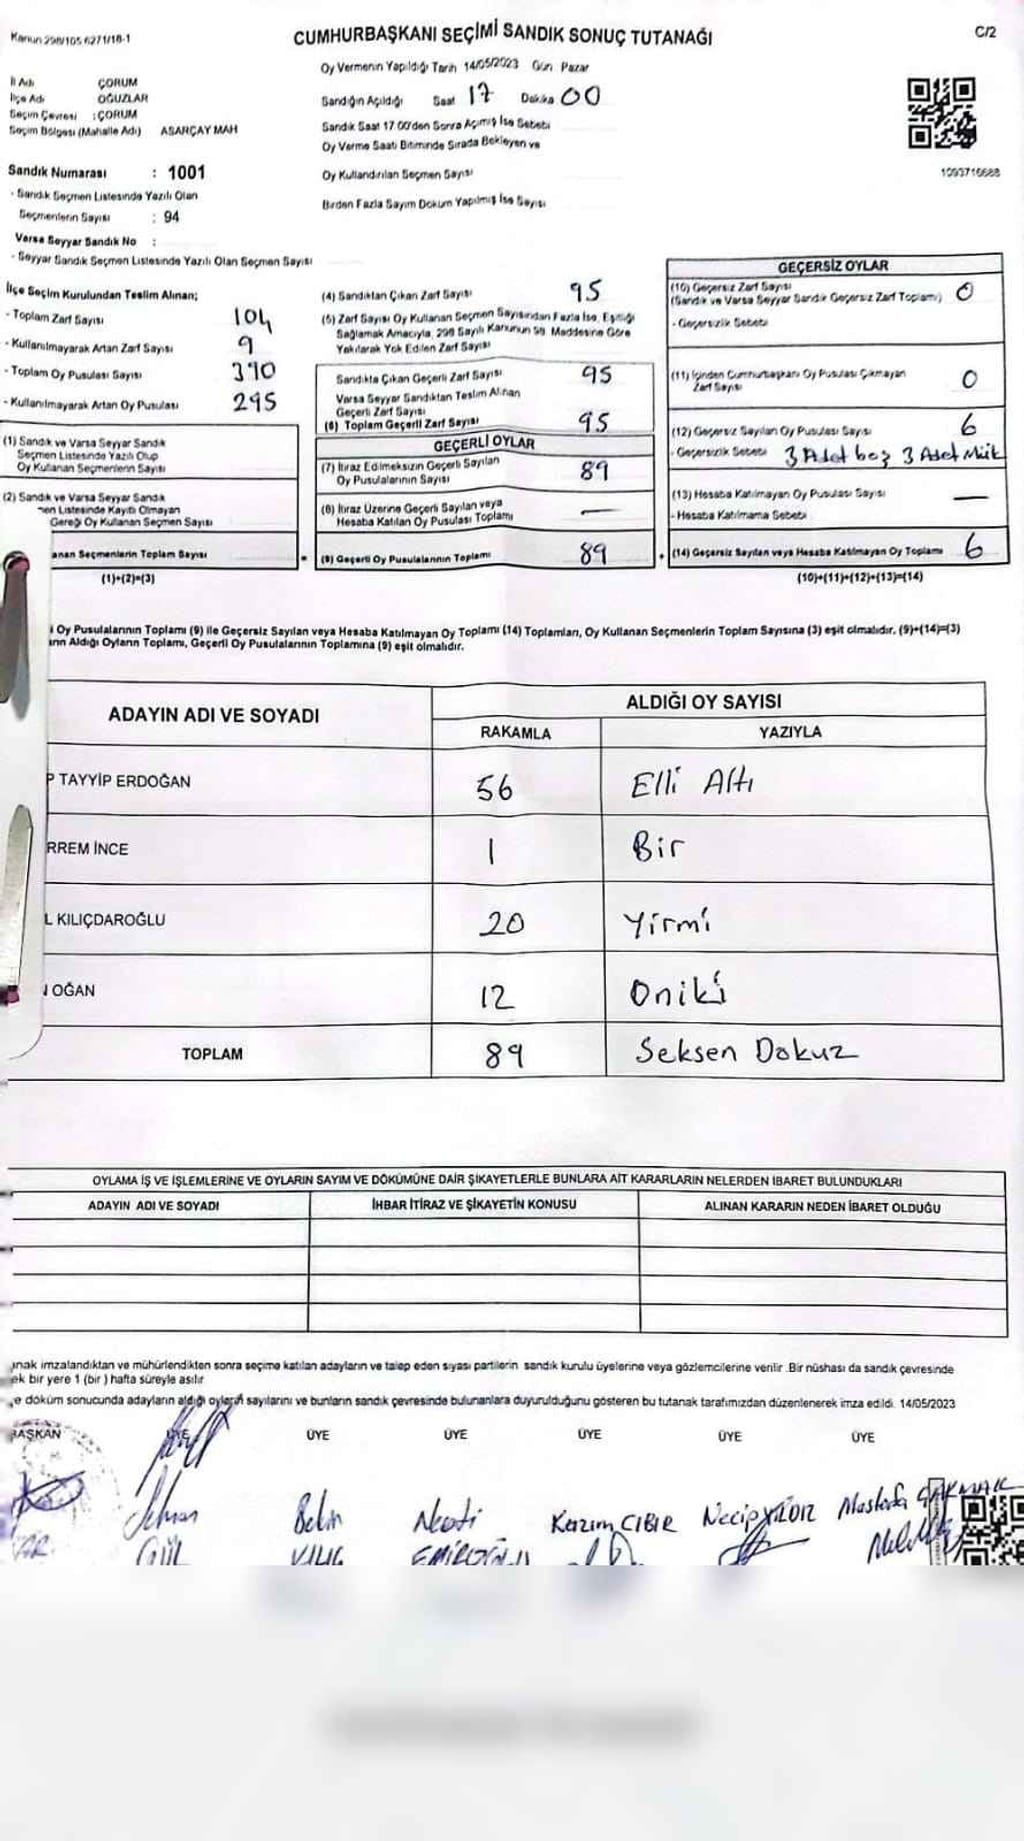 Kanun 298/105 6271/18-1
CUMHURBAŞKANI SEÇİMİ SANDIK SONUÇ TUTANAĞI
C/2
Oy Vermenin Yapıldığı Tarih 14/05/2023 Gün Pazar
İl Adı ÇORUM
İlçe Adı OĞUZLAR
Seçim Çevresi : ÇORUM
Seçim Bölgesi (Mahalle Adı) ASARÇAY MAH
Sandığın Açıldığı Saat 17 Dakika 00
Sandık Saat 17.00'den Sonra Açımış İse Sebebi
Oy Verme Saati Bitiminde Sırada Bekleyen ve
Oy Kullandırılan Seçmen Sayısı
Birden Fazla Sayım Döküm Yapılmış İse Sayısı
1093716688
Sandık Numarası : 1001
- Sandık Seçmen Listesinde Yazılı Olan
Seçmenlerin Sayısı : 94
Varsa Seyyar Sandık No :
- Seyyar Sandık Seçmen Listesinde Yazılı Olan Seçmen Sayısı
İlçe Seçim Kurulundan Teslim Alınan;
- Toplam Zarf Sayısı 104
- Kullanılmayarak Artan Zarf Sayısı 9
- Toplam Oy Pusulası Sayısı 390
- Kullanılmayarak Artan Oy Pusulası 295
(1) Sandık ve Varsa Seyyar Sandık
Seçmen Listesinde Yazılı Olup
Oy Kullanan Seçmenlerin Sayısı
(2) Sandık ve Varsa Seyyar Sandık
men Listesinde Kayıtlı Olmayan
Gereği Oy Kullanan Seçmen Sayısı
anan Seçmenlerin Toplam Sayısı
(1)+(2)=(3)
(4) Sandıktan Çıkan Zarf Sayısı 95
(5) Zarf Sayısı Oy Kullanan Seçmen Sayısından Fazla İse, Eşitliği
Sağlamak Amacıyla, 298 Sayılı Kanunun 98. Maddesine Göre
Yakılarak Yok Edilen Zarf Sayısı
Sandıkta Çıkan Geçerli Zarf Sayısı 95
Varsa Seyyar Sandıktan Teslim Alınan
Geçerli Zarf Sayısı
(6) Toplam Geçerli Zarf Sayısı 95
GEÇERLİ OYLAR
(7) İtiraz Edilmeksizin Geçerli Sayılan
Oy Pusulalarının Sayısı 89
(8) İtiraz Üzerine Geçerli Sayılan veya
Hesaba Katılan Oy Pusulası Toplamı —
= (9) Geçerli Oy Pusulalarının Toplamı 89
GEÇERSİZ OYLAR
(10) Geçersiz Zarf Sayısı 0
(Sandık ve Varsa Seyyar Sandık Geçersiz Zarf Toplamı)
- Geçersizlik Sebebi
(11) İçinden Cumhurbaşkanı Oy Pusulası Çıkmayan
Zarf Sayısı 0
(12) Geçersiz Sayılan Oy Pusulası Sayısı 6
- Geçersizlik Sebebi 3 Adet boş 3 Adet Mük
(13) Hesaba Katılmayan Oy Pusulası Sayısı —
- Hesaba Katılmama Sebebi
+ (14) Geçersiz Sayılan veya Hesaba Katılmayan Oy Toplamı 6
(10)+(11)+(12)+(13)=(14)
i Oy Pusulalarının Toplamı (9) ile Geçersiz Sayılan veya Hesaba Katılmayan Oy Toplamı (14) Toplamları, Oy Kullanan Seçmenlerin Toplam Sayısına (3) eşit olmalıdır. (9)+(14)=(3)
arın Aldığı Oyların Toplamı, Geçerli Oy Pusulalarının Toplamına (9) eşit olmalıdır.
ADAYIN ADI VE SOYADI
ALDIĞI OY SAYISI
RAKAMLA YAZIYLA
P TAYYİP ERDOĞAN 56 Elli Altı
RREM İNCE 1 Bir
L KILIÇDAROĞLU 20 Yirmi
OĞAN 12 Oniki
TOPLAM 89 Seksen Dokuz
OYLAMA İŞ VE İŞLEMLERİNE VE OYLARIN SAYIM VE DÖKÜMÜNE DAİR ŞİKAYETLERLE BUNLARA AİT KARARLARIN NELERDEN İBARET BULUNDUKLARI
ADAYIN ADI VE SOYADI İHBAR İTİRAZ VE ŞİKAYETİN KONUSU ALINAN KARARIN NEDEN İBARET OLDUĞU
anak imzalandıktan ve mühürlendikten sonra seçime katılan adayların ve talep eden siyasi partilerin sandık kurulu üyelerine veya gözlemcilerine verilir. Bir nüshası da sandık çevresinde
ek bir yere 1 (bir) hafta süreyle asılır
e döküm sonucunda adayların aldığı oyların sayılarını ve bunların sandık çevresinde bulunanlara duyurulduğunu gösteren bu tutanak tarafımızdan düzenlenerek imza edildi. 14/05/2023
BAŞKAN ÜYE ÜYE ÜYE ÜYE ÜYE ÜYE
Kazım CIBIR Necip YILDIZ Mustafa ÇAKMAK